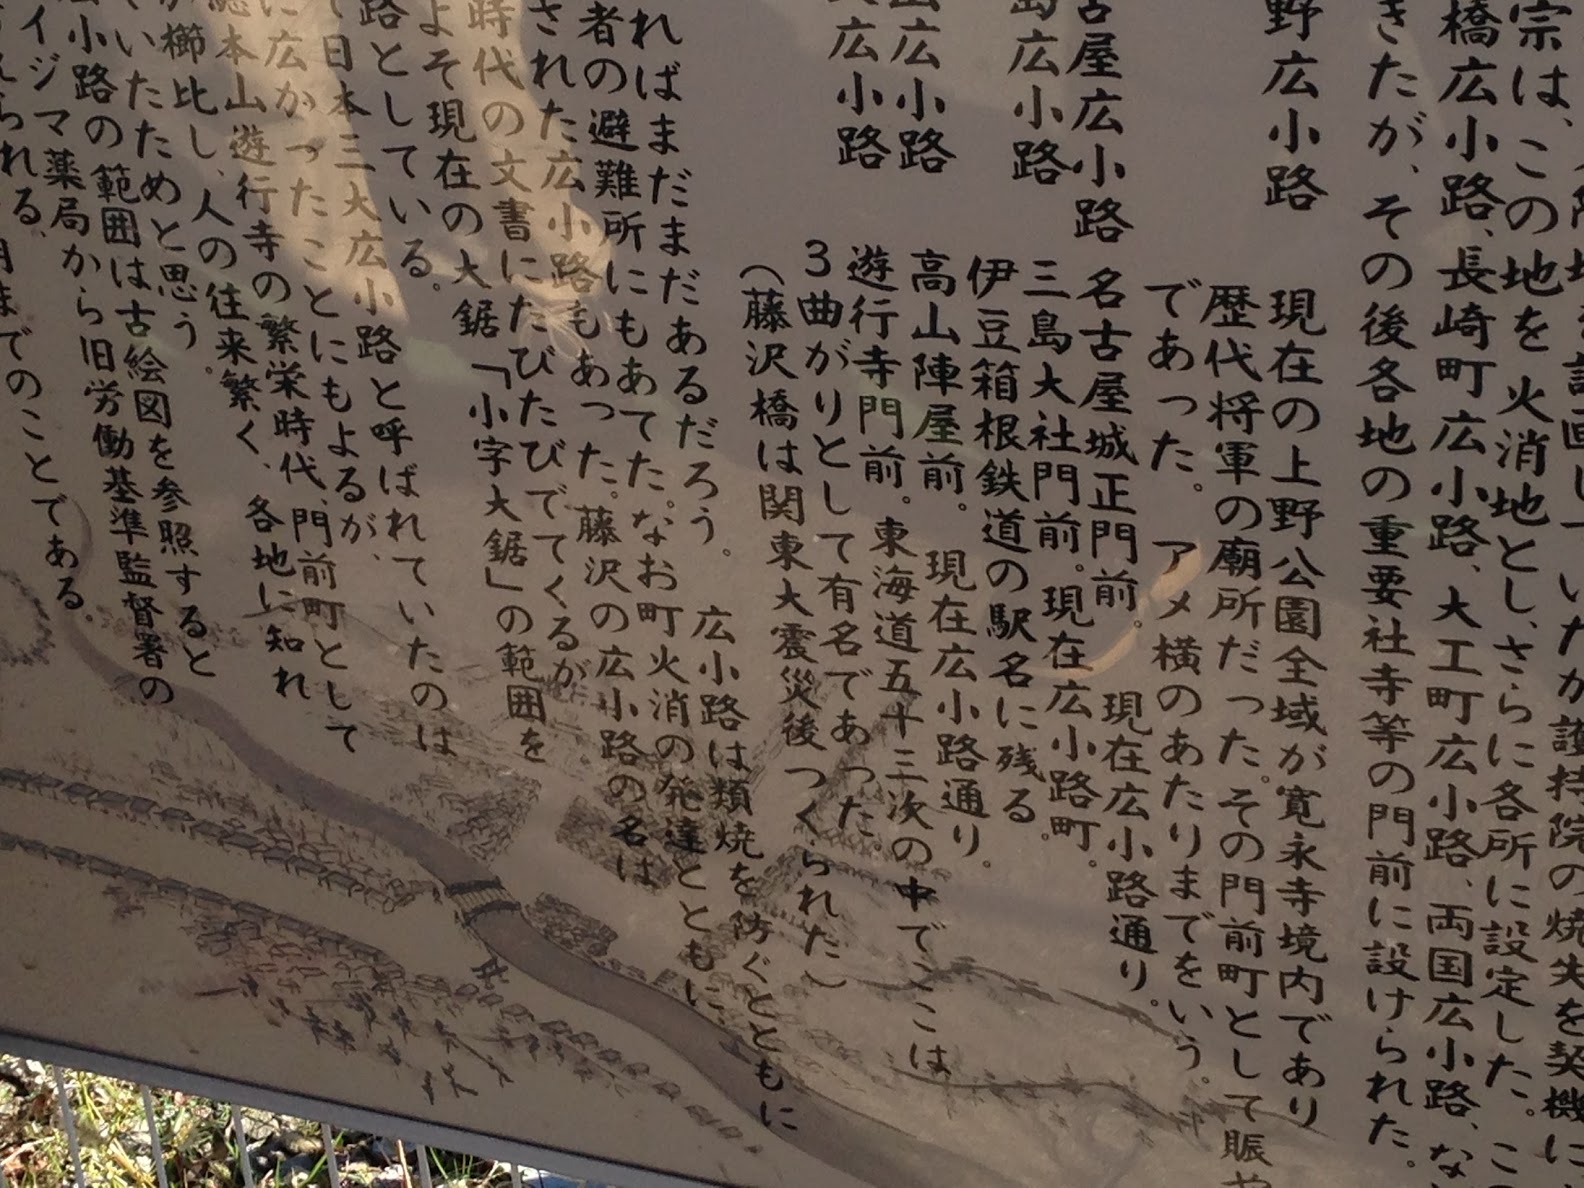 計画し
いたが護持院の焼失を契機に
宗は、この地を火消地とし、さらに各所に設定した。こ
橋広小路、長崎町広小路、大工町広小路、両国広小路、な
きたが、その後各地の重要社寺等の門前に設けられた。
野広小路 現在の上野公園全域が寛永寺境内であり
歴代将軍の廟所だった。その門前町として賑や
であった。 アメ横のあたりまでをいう。
古屋広小路 名古屋城正門前。 現在広小路通り。
島広小路 三島大社門前。現在広小路町。
伊豆箱根鉄道の駅名に残る。
山広小路 高山陣屋前。 現在広小路通り。
広小路 遊行寺門前。東海道五十三次の中で、ここは
3曲がりとして有名であった。
(藤沢橋は関東大震災後つくられた)
広小路は類焼を防ぐとともに
ればまだまだあるだろう。
者の避難所にもあてた。なお町火消の発達とともに
された広小路もあった。藤沢の広小路の名は
時代の文書にたびたびでてくるが
よそ現在の大鋸「小字大鋸」の範囲を
路としている。
て日本三大広小路と呼ばれていたのは
に広かったことにもよるが、
本山遊行寺の繁栄時代、門前町として
櫛比し、人の往来繁く、各地に知れ
ていたためと思う。
小路の範囲は古絵図を参照すると
イジマ薬局から旧労働基準監督署の
えられる。
までのことである。